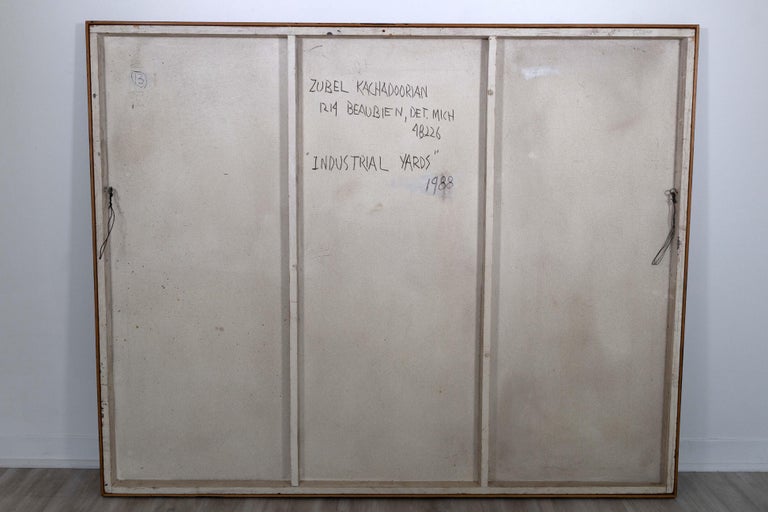 13
ZUBEL KACHADOORIAN
1214 BEAUBIEN, DET. MICH
48226
"INDUSTRIAL YARDS"
1988